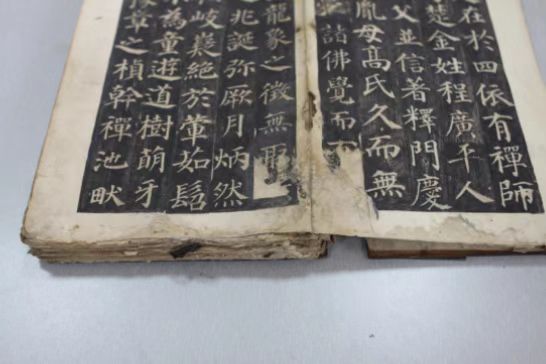 在於四依有禪師
楚金姓程廣平人
父並信著釋門慶
胤母髙氏久而無
諸佛覺而
龍象之徵無
兆誕弥厥月炳然
岐嶷絕於葷茹髫
為童遊道樹萌牙
章之楨幹禪池畎